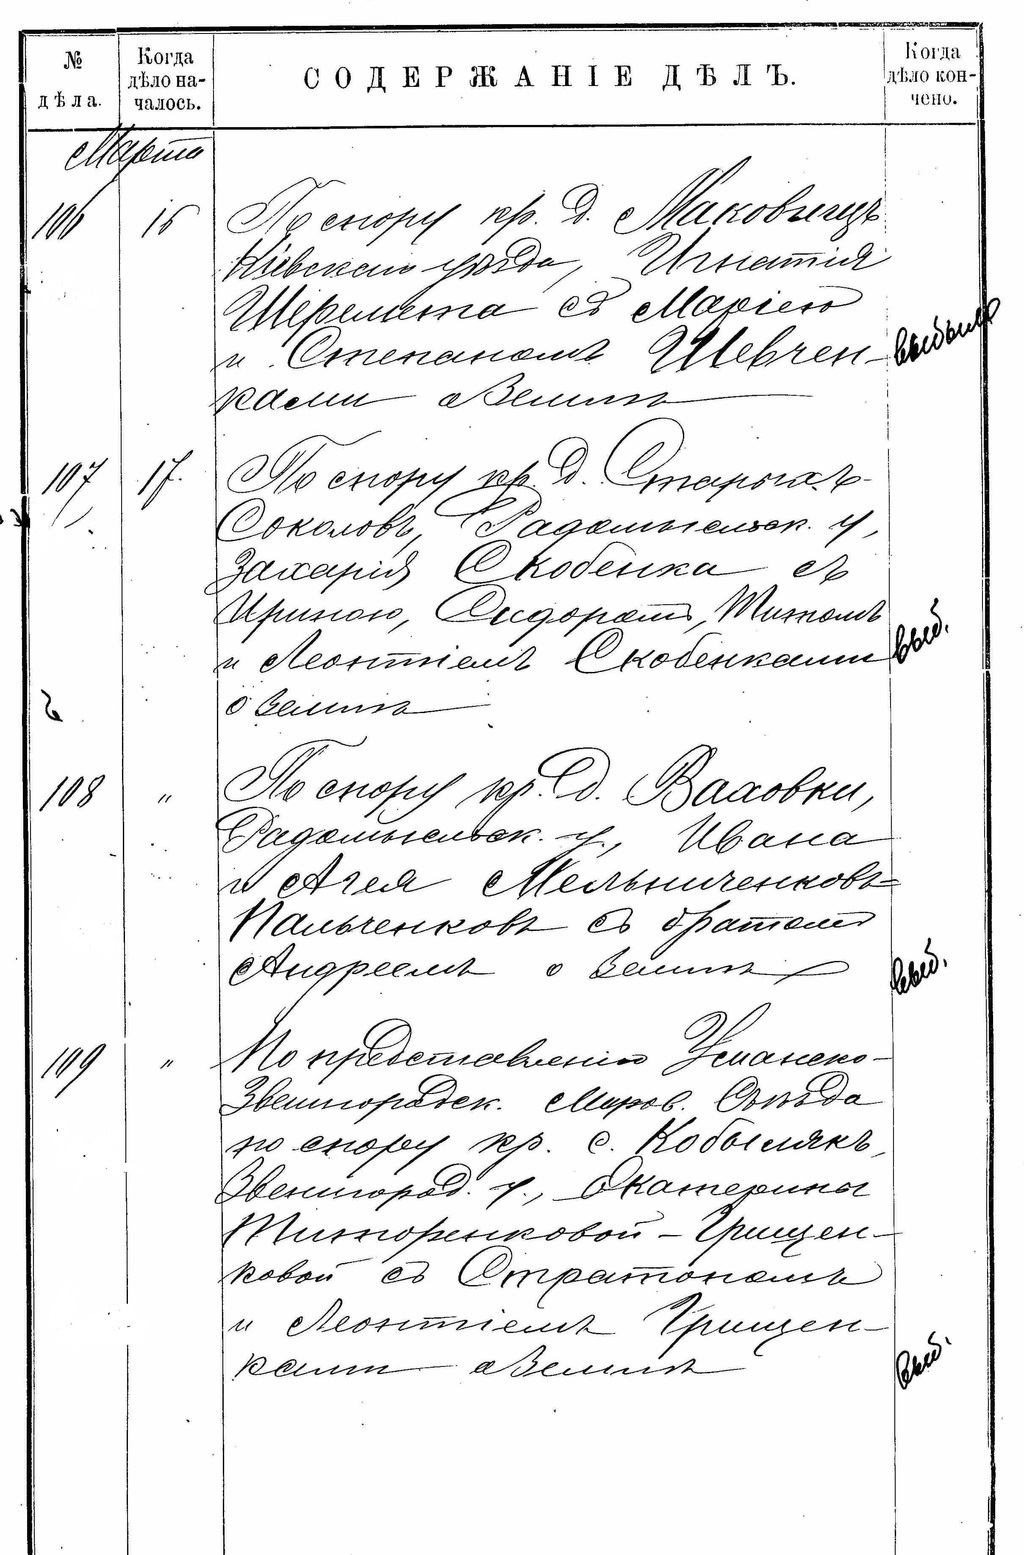 № дѣла.
Когда дѣло на-
чалось.
СОДЕРЖАНІЕ ДѢЛЪ.
Когда дѣло кон-
чено.
Марта
106 16 По спору кр. д. Маковищъ
Кіевскаго уѣзда, Игнатія
Шеремета съ Маріею
и Степаномъ Шевчен-
ками о землѣ
выбыло
107 17. По спору кр. д. Старыхъ-
Соколовъ, Радомысльск. у,
Захарія Скобенка съ
Ириною, Сидоромъ, Титомъ
и Леонтіемъ Скобенками
о землѣ
выб.
108 " По спору кр. д. Ваховки,
Радомысльск. у., Ивана
и Агея Мельниченковъ=
Пальченковъ съ братомъ
Андреемъ о землѣ
выб.
109 " По представленію Уманско-
Звенигородск. Миров. Съѣзда
по спору кр. с. Кобылякъ,
Звенигород. у., Екатерины
Титоренковой-Грищен-
ковой съ Стратономъ
и Леонтіемъ Грищен-
ками о землѣ
выб.